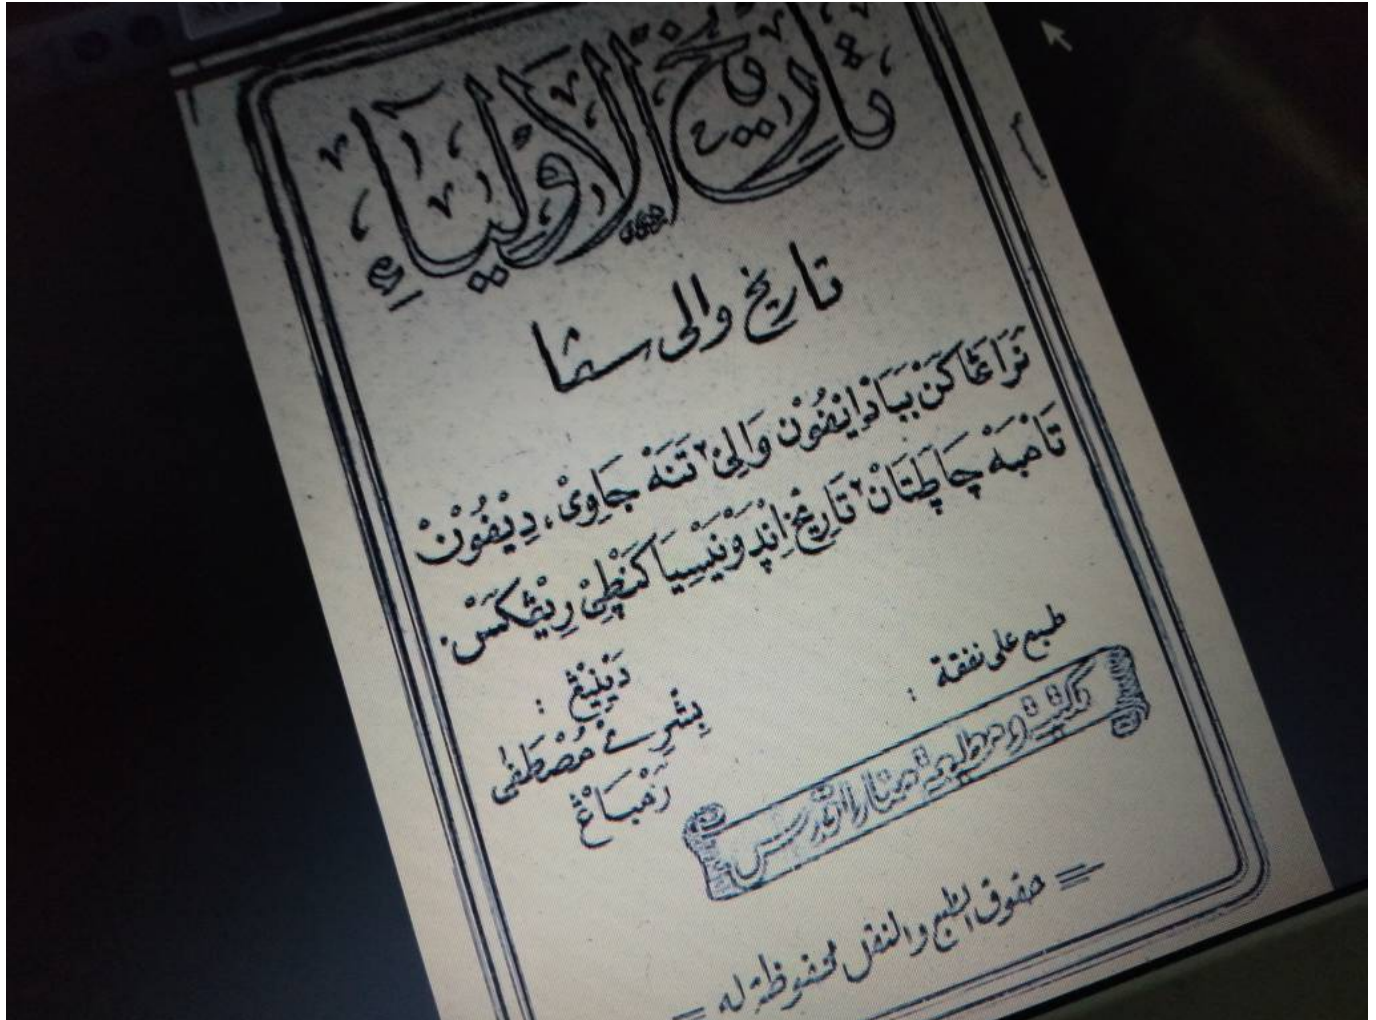 تاريخ الأولياء
تاريخ والى سڠا
نَرَاڠَاكَنْ بَبَادْ اِيْڤُوْنْ وَالِىْ٢ تَنَهْ جَاوِىْ، دِيْڤُوْنْ
تَامْبَهْ چَاطَتَانْ٢ تَارِيْخْ اِنْدَوْنَيْسِيَا كَنْطِيْ رِيْڠْكَسْ.
دَيْنِيْڠْ :
بِشْرِيْ مُصْطَفٰى
رَمْبَاڠْ
طبع على نفقة :
مكتبة ومطبعة منارا قدس
= حقوق الطبع والنقل محفوظة له =